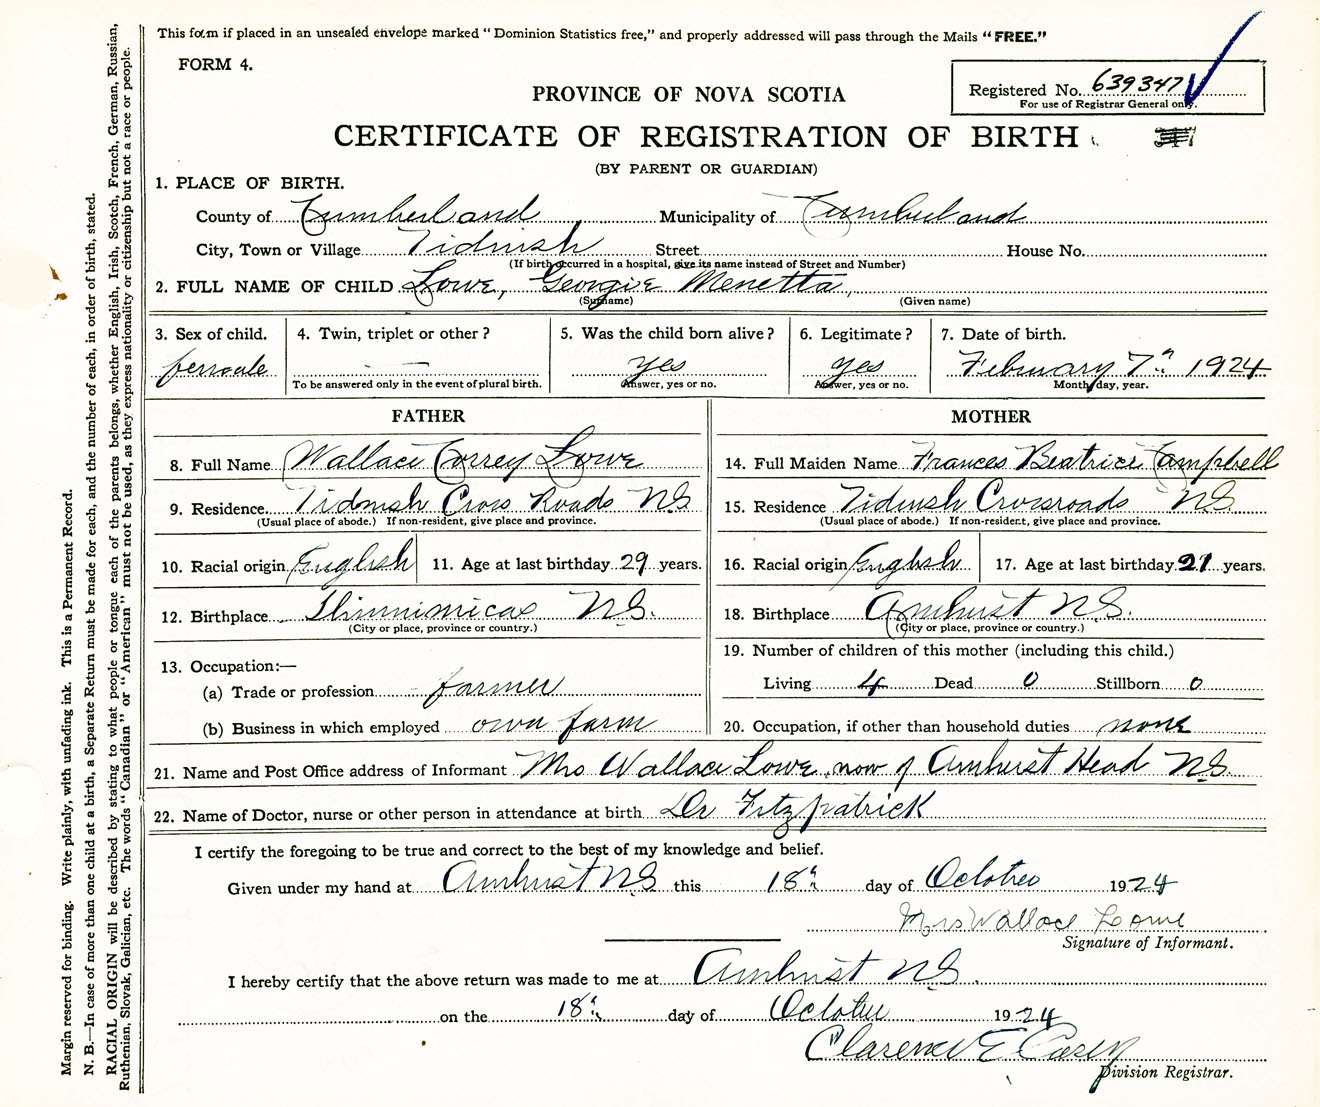 This form if placed in an unsealed envelope marked "Dominion Statistics free," and properly addressed will pass through the Mails "FREE."
FORM 4.
Registered No. 639347
For use of Registrar General only.
PROVINCE OF NOVA SCOTIA
CERTIFICATE OF REGISTRATION OF BIRTH
(BY PARENT OR GUARDIAN)
1. PLACE OF BIRTH.
County of Cumberland Municipality of Cumberland
City, Town or Village Tidnish Street House No.
(If birth occurred in a hospital, give its name instead of Street and Number)
2. FULL NAME OF CHILD Lowe, Georgie Menetta,
(Surname) (Given name)
3. Sex of child. 4. Twin, triplet or other? 5. Was the child born alive? 6. Legitimate? 7. Date of birth.
female — yes yes February 7th 1924
To be answered only in the event of plural birth. Answer, yes or no. Answer, yes or no. Month, day, year.
FATHER MOTHER
8. Full Name Wallace Torrey Lowe 14. Full Maiden Name Frances Beatrice Campbell
9. Residence Tidnish Cross Roads NS 15. Residence Tidnish Crossroads NS
(Usual place of abode.) If non-resident, give place and province. (Usual place of abode.) If non-resident, give place and province.
10. Racial origin English 11. Age at last birthday 29 years. 16. Racial origin English 17. Age at last birthday 27 years.
12. Birthplace Shinimicas N.S. 18. Birthplace Amherst N.S.
(City or place, province or country.) (City or place, province or country.)
13. Occupation:— 19. Number of children of this mother (including this child.)
(a) Trade or profession farmer Living 4 Dead 0 Stillborn 0
(b) Business in which employed own farm 20. Occupation, if other than household duties none
21. Name and Post Office address of Informant Mrs Wallace Lowe, now of Amherst Head N.S.
22. Name of Doctor, nurse or other person in attendance at birth Dr Fitzpatrick
I certify the foregoing to be true and correct to the best of my knowledge and belief.
Given under my hand at Amherst NS this 18th day of October 1924
Mrs Wallace Lowe
Signature of Informant.
I hereby certify that the above return was made to me at Amherst NS.
on the 18th day of October 1924
Clarence E Casey
Division Registrar.
Margin reserved for binding. Write plainly, with unfading ink. This is a Permanent Record.
N. B.—In case of more than one child at a birth, a Separate Return must be made for each, and the number of each, in order of birth, stated.
RACIAL ORIGIN will be described by stating to what people or tongue each of the parents belongs, whether English, Irish, Scotch, French, German, Russian,
Ruthenian, Slovak, Galician, etc. The words "Canadian" or "American" must not be used, as they express nationality or citizenship but not a race or people.